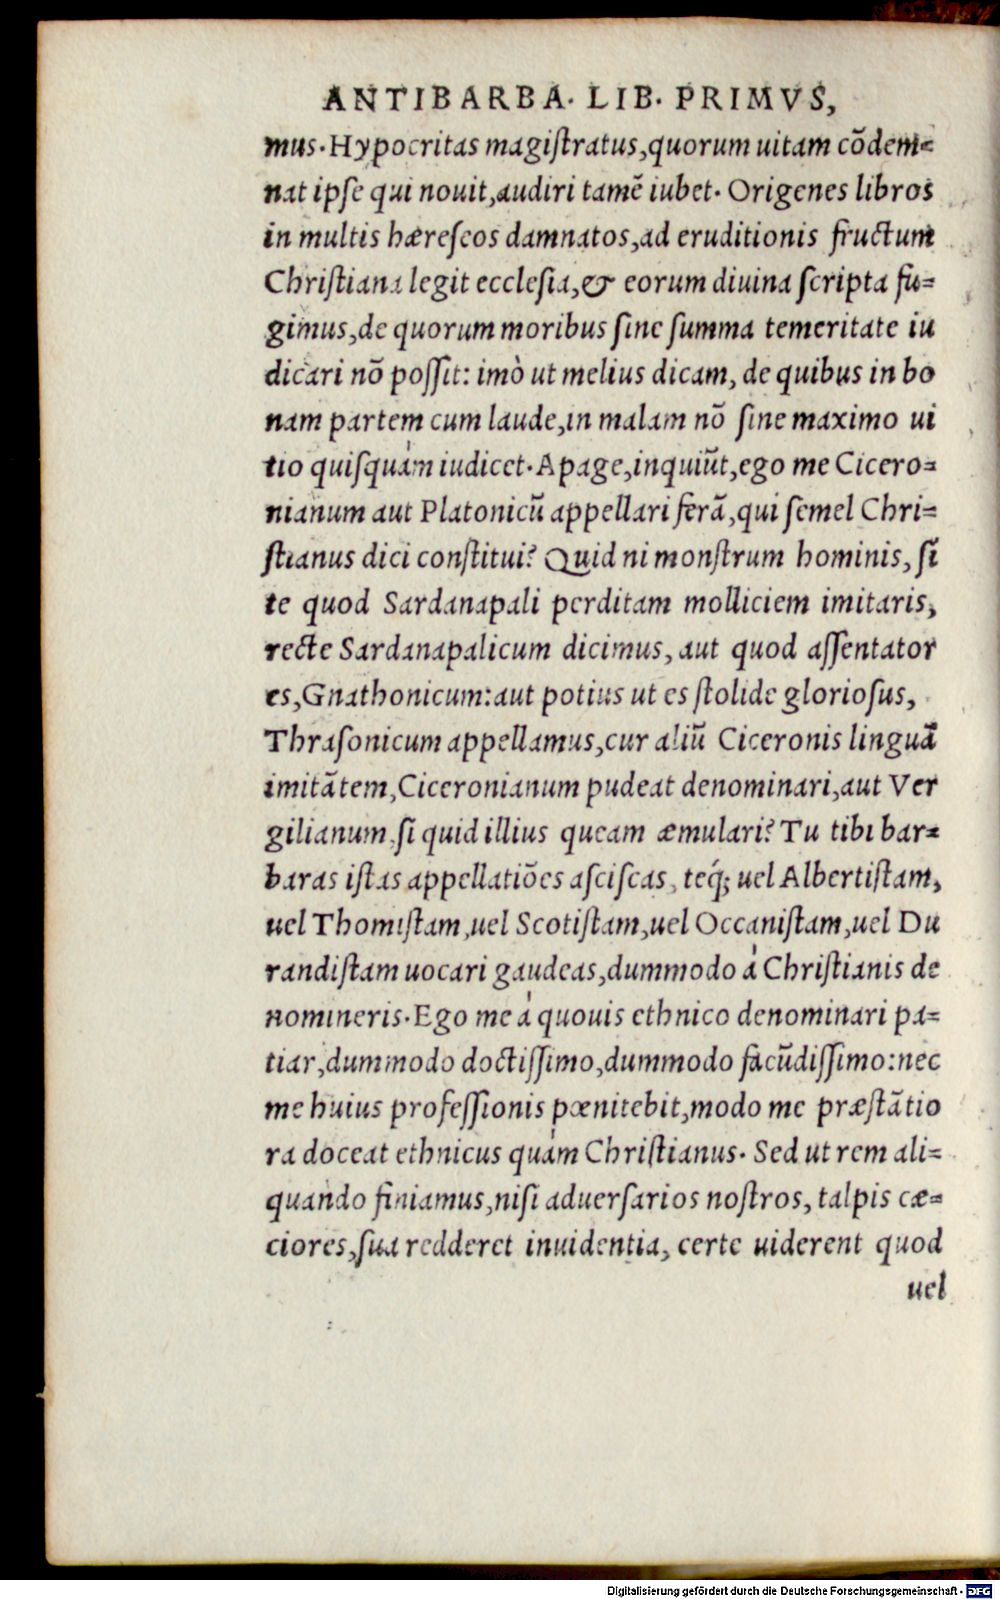 ANTIBARBA. LIB. PRIMVS,
mus. Hypocritas magiſtratus, quorum uitam cōdem=
nat ipſe qui nouit, audiri tamē iubet. Origenes libros
in multis hæreſeos damnatos, ad eruditionis fructum
Chriſtiana legit eccleſia, & eorum diuina ſcripta fu=
gimus, de quorum moribus ſine ſumma temeritate iu
dicari nō poſſit: imò ut melius dicam, de quibus in bo
nam partem cum laude, in malam nō ſine maximo ui
tio quiſquàm iudicet. Apage, inquiūt, ego me Cicero=
nianum aut Platonicū appellari ferā, qui ſemel Chri=
ſtianus dici conſtitui? Quid ni monſtrum hominis, ſī
te quod Sardanapali perditam molliciem imitaris,
recte Sardanapalicum dicimus, aut quod aſſentator
es, Gnathonicum: aut potius ut es ſtolide glorioſus,
Thraſonicum appellamus, cur aliū Ciceronis linguā
imitātem, Ciceronianum pudeat denominari, aut Ver
gilianum, ſi quid illius queam æmulari? Tu tibi bar=
baras iſtas appellatiōes aſciſcas, teq́; uel Albertiſtam,
uel Thomiſtam, uel Scotiſtam, uel Occaniſtam, uel Du
randiſtam uocari gaudeas, dummodo à Chriſtianis de
nomineris. Ego me à quouis ethnico denominari pa=
tiar, dummodo doctiſſimo, dummodo facūdiſſimo: nec
me huius profeſſionis pœnitebit, modo me præſtātio
ra doceat ethnicus quàm Chriſtianus. Sed ut rem ali=
quando finiamus, niſi aduerſarios noſtros, talpis cæ=
ciores, ſua redderet inuidentia, certe uiderent quod
uel
Digitalisierung gefördert durch die Deutsche Forschungsgemeinschaft - DFG